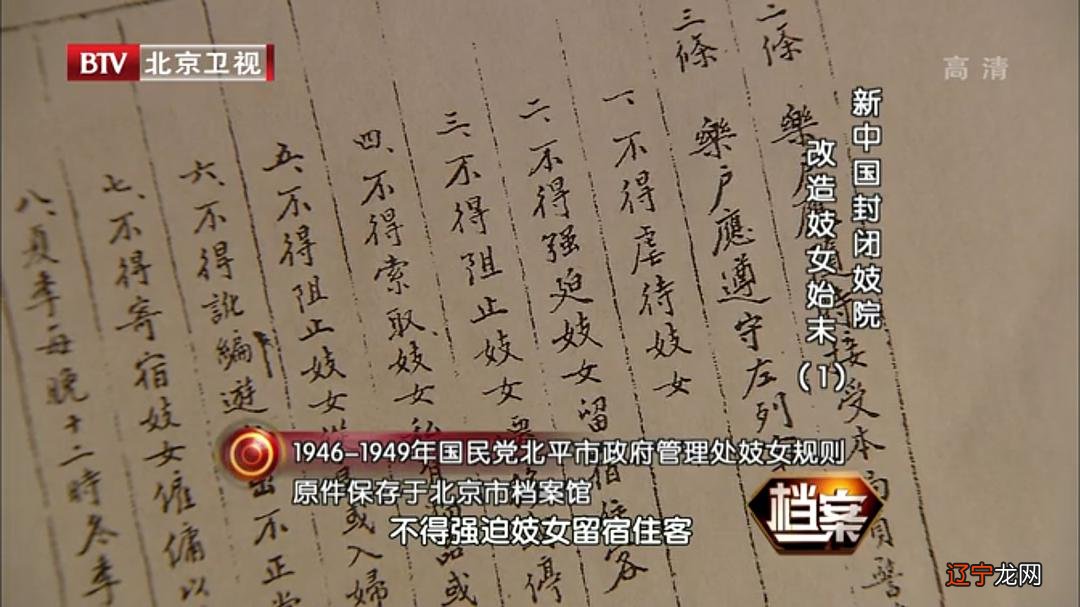 BTV 北京卫视
高清
新中国封闭妓院
改造妓女始末
(1)
二條 樂户應 接受本局員警
三條 樂户應遵守左列
一、不得虐待妓女
二、不得强迫妓女留宿住客
三、不得阻止妓女 停
四、不得索取妓女私 品或
五、不得阻止妓女從良或入婦
六、不得訛編遊 出不正當
七、不得寄宿妓女僱傭以
八、夏季每晚十二時冬季
1946-1949年国民党北平市政府管理处妓女规则
原件保存于北京市档案馆
不得强迫妓女留宿住客
档案
辽宁龙网